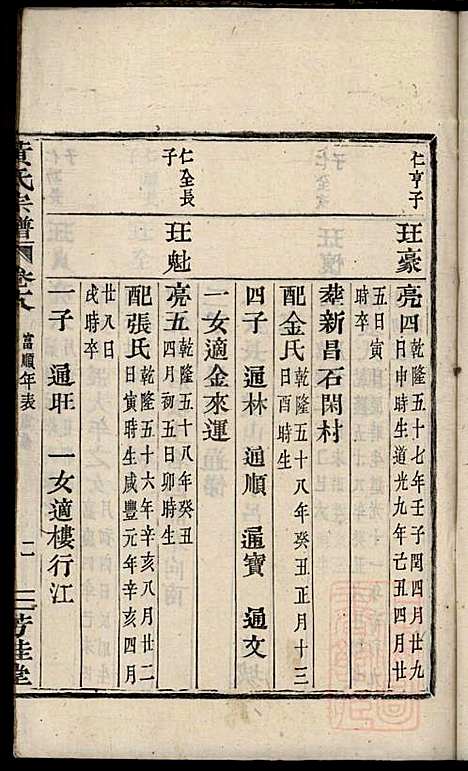 仁亨子
玨豪
亮四 乾隆五十七年壬子閏四月廿九
日申時生道光九年己丑四月廿
五日寅
時卒
葬新昌石閑村
配金氏 乾隆五十八年癸丑正月十三
日酉時生
四子 通林 通順 通寶 通文
一女適金來運
仁全長
子
玨魁
亮五 乾隆五十八年癸丑
四月初五日卯時生
配張氏 乾隆五十六年辛亥八月廿二
日寅時生咸豐元年辛亥四月
廿八日
戌時卒
一子 通旺 一女適樓行江
黃氏宗譜 卷 富順年表 芳桂堂